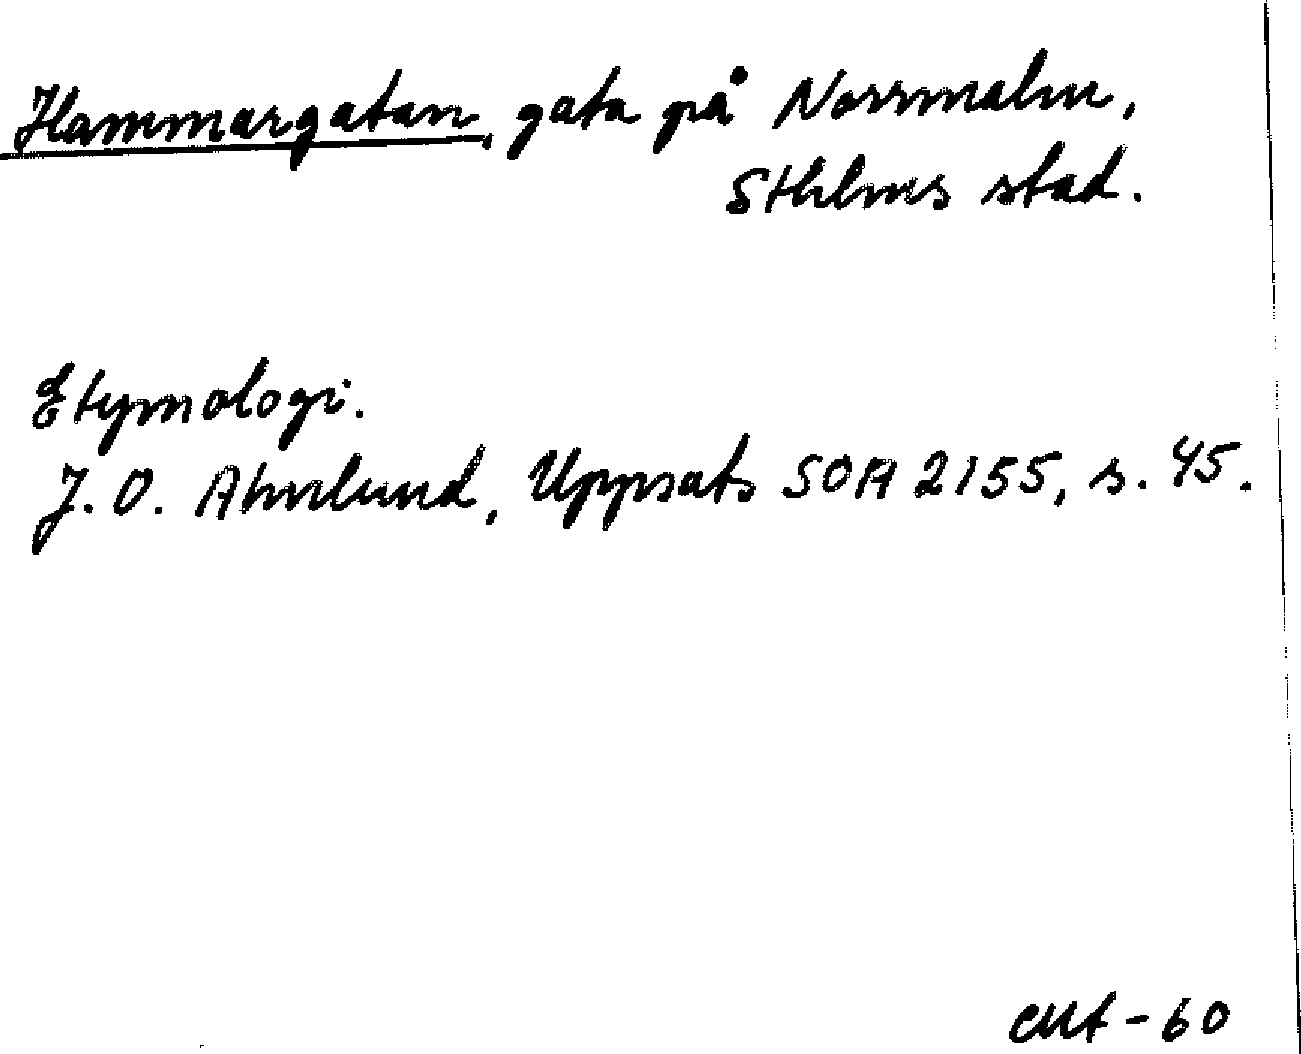 Hammargatan, gata på Norrmalm,
Sthlms stad.
Etymologi.
J. O. Ahnlund, Uppsats SOA 2155, s. 45.
-60